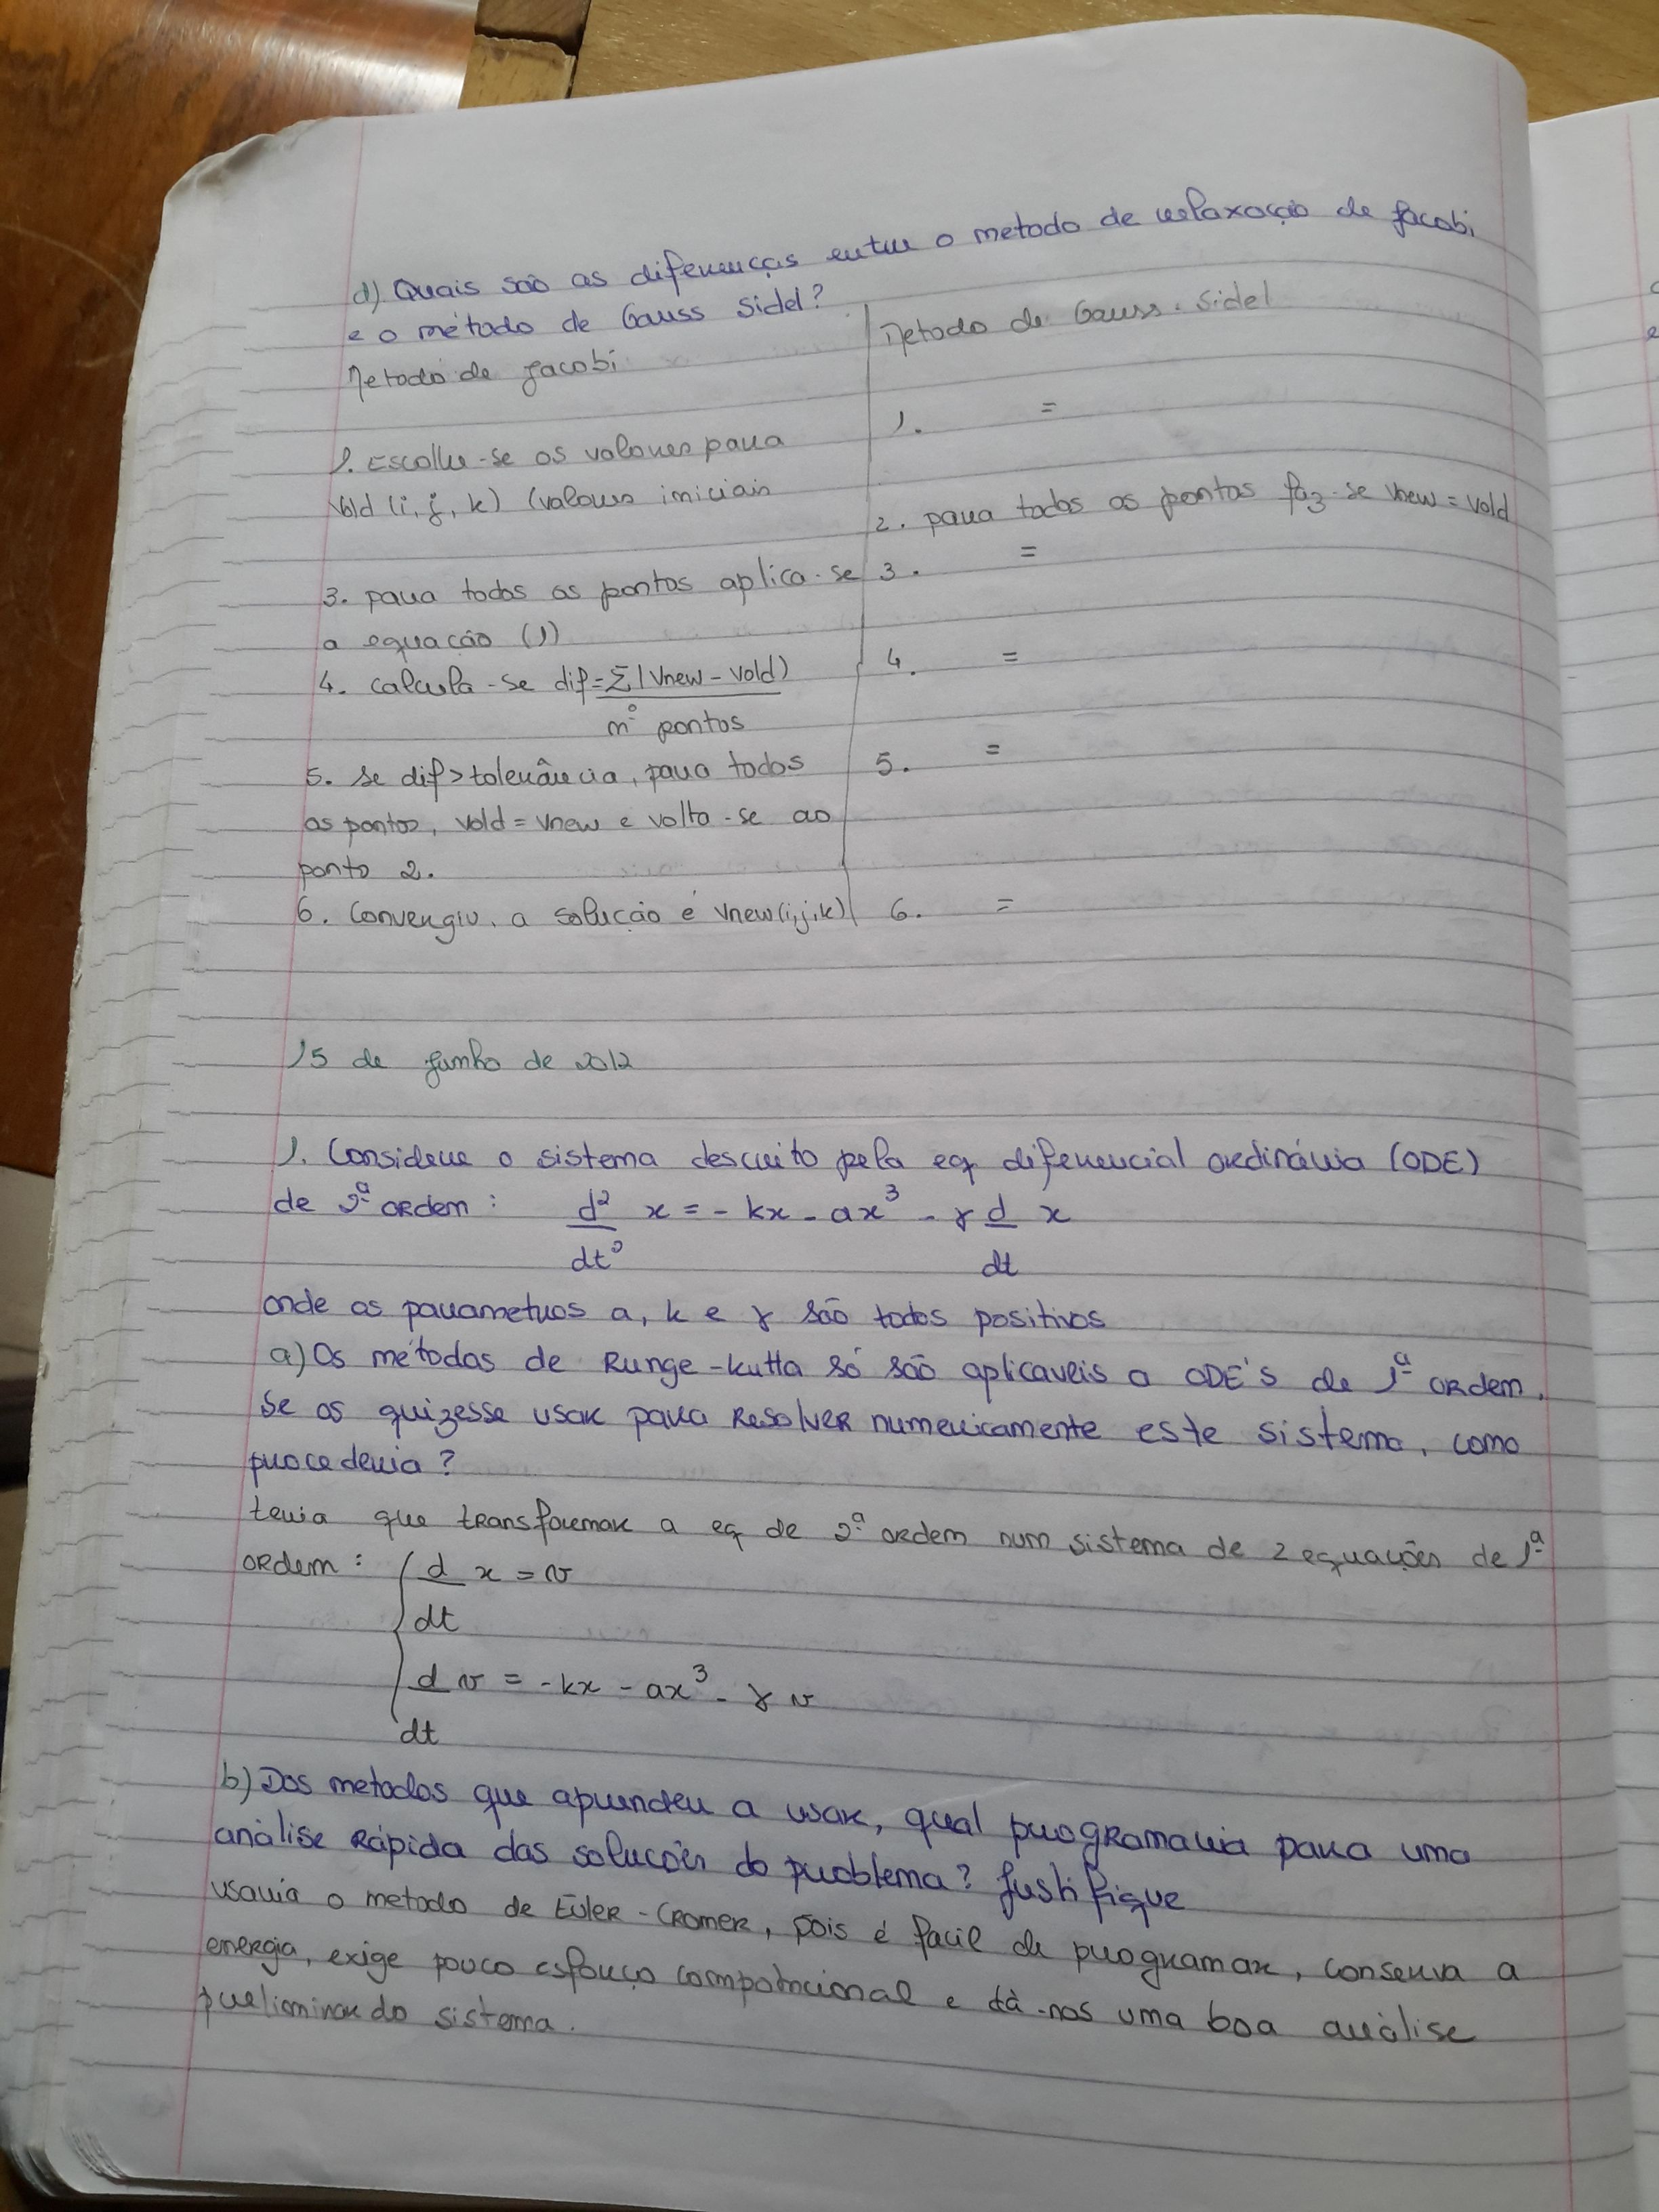 d) Quais são as diferenças entre o metodo de relaxação de Jacobi
e o método de Gauss Sidel?
Metodo de Jacobi
Metodo de Gauss-Sidel
1. Escolhe-se os valores para
Vold (i, j, k) (valores iniciais
1. =
2. para todos os pontos faz-se Vnew = Vold
3. para todos os pontos aplica-se
a equação (1)
3. =
4. calcula-se dif = Σ|Vnew - Vold)
nº pontos
4. =
5. se dif > tolerância, para todos
os pontos, Vold = Vnew e volta-se ao
ponto 2.
5. =
6. Convergiu, a solução é Vnew(i,j,k)
6. =
15 de Junho de 2012
1. Considere o sistema descrito pela eq diferencial ordinária (ODE)
de 2ª ordem: d² x = - kx - ax³ - γ d x
dt² dt
onde os parametros a, k e γ são todos positivos
a) Os métodos de Runge-kutta só são aplicaveis a ODE's de 1ª ordem.
Se os quizesse usar para resolver numericamente este sistema, como
procederia?
teria que transformar a eq de 2ª ordem num sistema de 2 equações de 1ª
ordem: { d x = v
dt
d v = - kx - ax³ - γ v
dt
b) Dos metodos que aprendeu a usar, qual programaria para uma
análise rápida das soluções do problema? Justifique
usaria o metodo de Euler-Cromer, pois é facil de programar, conserva a
energia, exige pouco esforço computacional e dá-nos uma boa análise
preliminar do sistema.